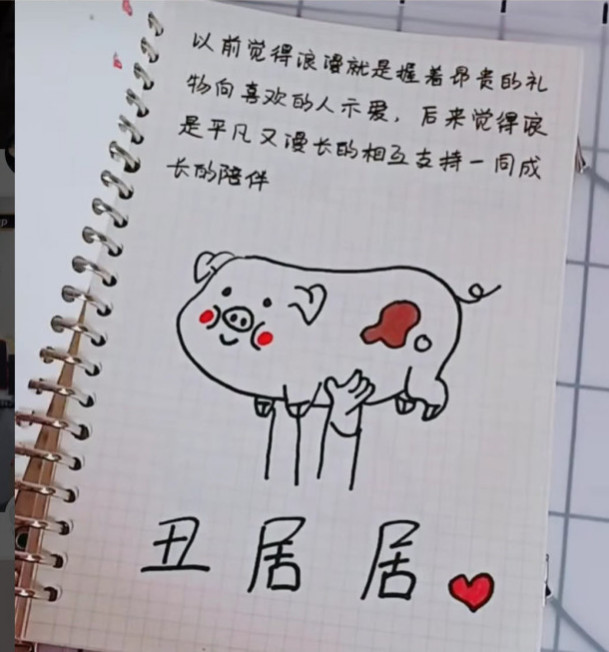 以前觉得浪漫就是握着昂贵的礼
物向喜欢的人示爱，后来觉得浪
是平凡又漫长的相互支持一同成
长的陪伴
丑居居